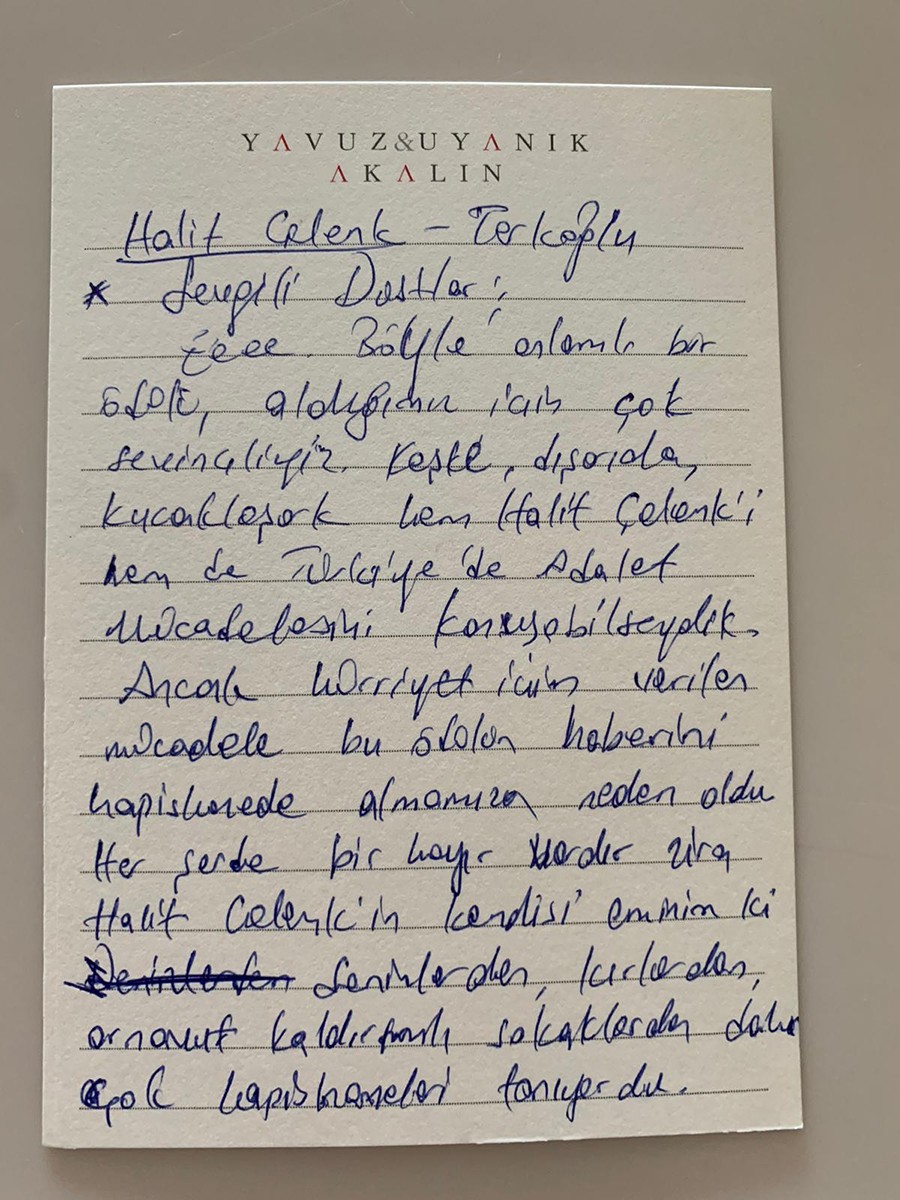 YAVUZ&UYANIK
AKALIN
Halit Çelenk - Terkoğlu
* Sevgili Dostlar;
Böyle anlamlı bir
ödülü, aldığımız için çok
sevinçliyiz. Keşke, dışarıda,
kucaklaşark hem Halit Çelenk'i
hem de Türkiye'de Adalet
Mücadelesini konuşabilseydik.
Ancak hürriyet için verilen
mücadele bu ödülün haberini
hapishanede almamıza neden oldu
Her şerde bir hayır vardır zira
Halit Çelenk'in kendisi eminim ki
denizlerden, kırlardan,
arnavut kaldırımlı sokaklardan daha
çok hapishaneleri tanıyordu.